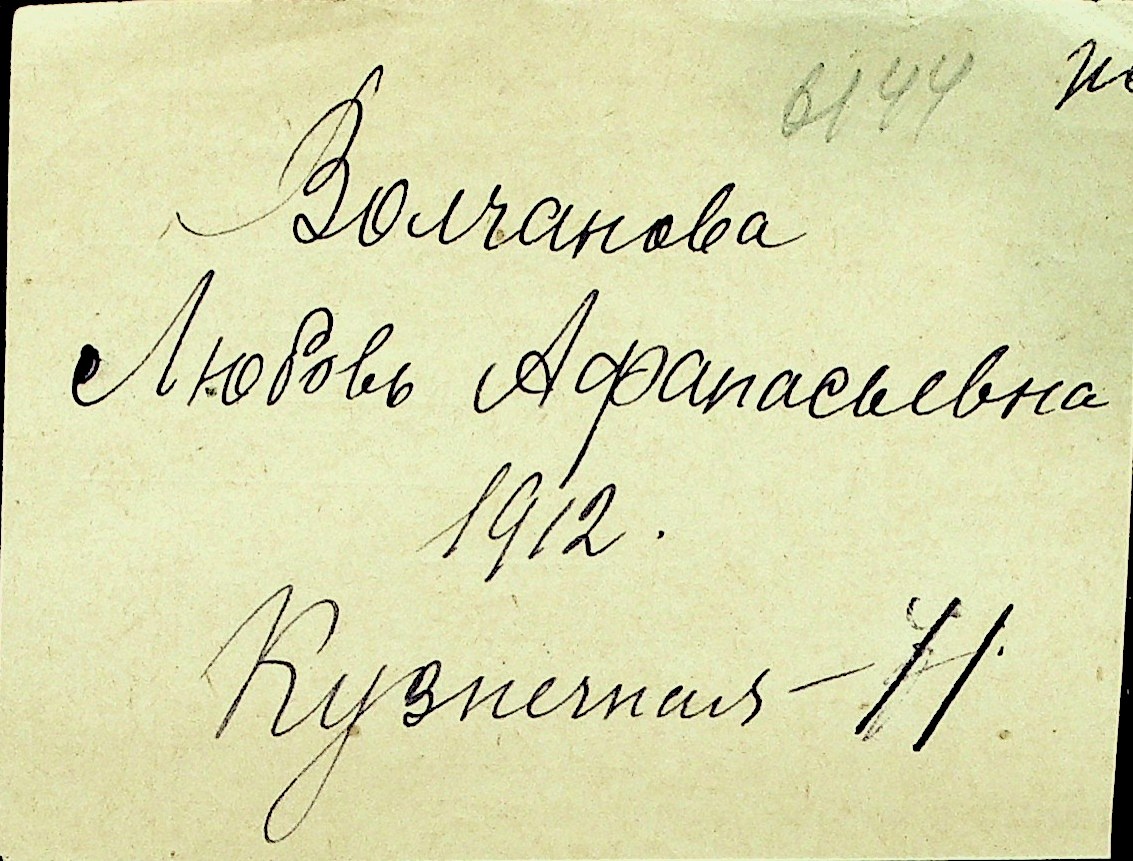 6144
Волчанова
Любовь Афанасьевна
1912.
Кузнечная – 11